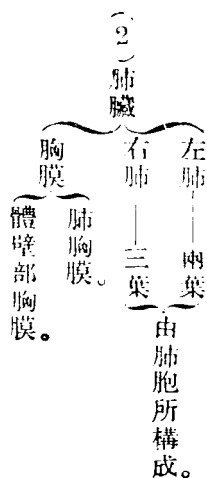 (2)肺臟
左肺——兩葉
右肺——三葉
由肺胞所構成。
胸膜
肺胸膜。
體壁部胸膜。